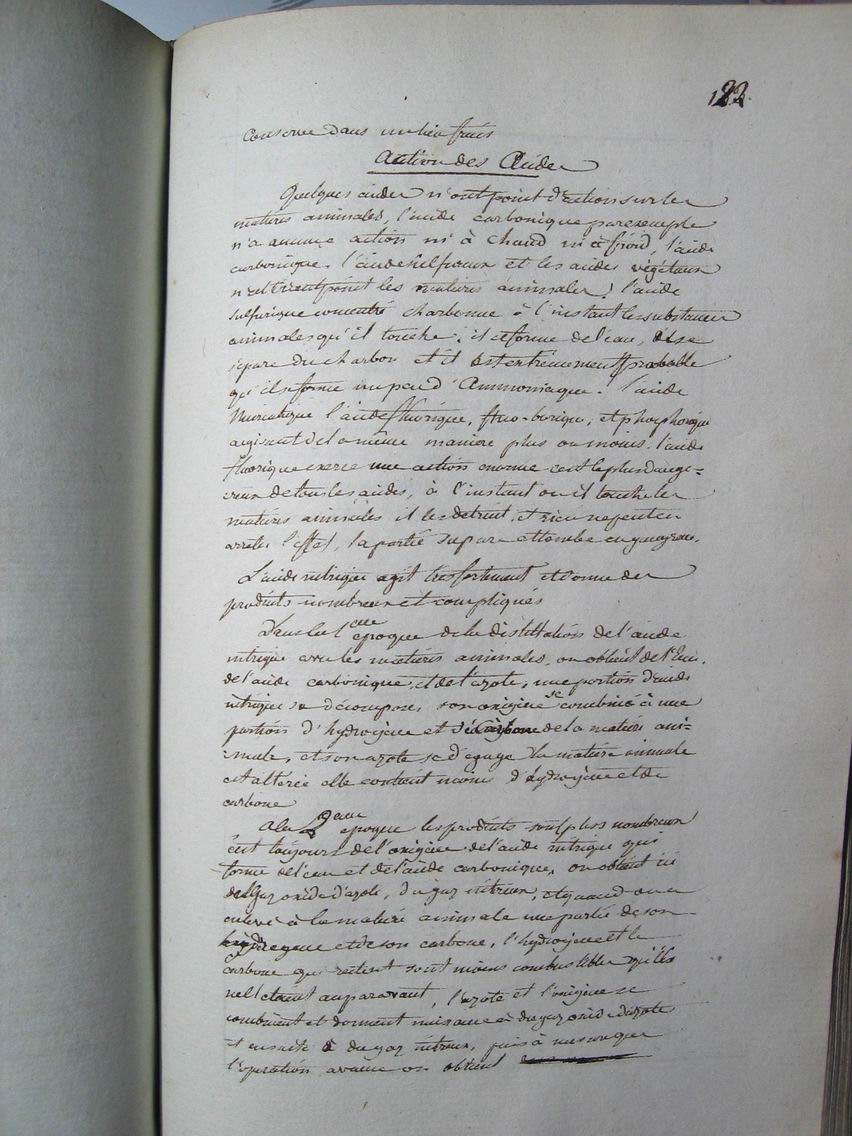 122.
conservé dans un lieu frais
Action des Acides
Quelques acides n'ont point d'action sur les
matières animales, l'acide carbonique par exemple
n'a aucune action ni à chaud ni à froid, l'acide
carbonique, l'acide sulfureux et les acides végétaux
les matières animales! l'acide
sulfurique concentré charbonne à l'instant les substances
animales qu'il touche; il se forme de l'eau, il se
sépare du charbon et il est extrêmement probable
qu'il se forme un peu d'Ammoniaque. l'acide
Muriatique l'acide fluorique, fluo-borique, et phosphorique
agissent de la même manière plus ou moins. l'acide
fluorique exerce une action énorme c'est le plus dange=
reux de tous les acides, à l'instant où il touche les
matières animales il les détruit, et rien ne peut en
arrêter l'effet, la partie se pare et tombe en gangrene.
L'acide nitrique agit très fortement et donne des
produits nombreux et compliqués
Dans la 1ere époque de la distillation de l'acide
nitrique avec les matières animales, on obtient de l'Eau,
de l'acide carbonique, et de l'azote, une portion d'acide
nitrique se décompose, son oxigène se combine à une
portion d'hydrogène et de Carbone de la matière ani=
=male, et son azote se dégage la matière animale
est altérée elle contient moins d'hydrogène et de
carbone
A la 2eme époque les produits sont plus nombreux
c'est toujours de l'oxigène de l'acide nitrique qui
forme de l'eau et de l'acide carbonique, on obtient ici
du Gaz oxide d'azote, du gaz nitreux, et quand on a
enlevé à la matière animale une partie de son
hydrogene et de son carbone, l'hydrogène et le
carbone qui restent sont moins combustibles qu'ils
ne l'étaient auparavant, l'azote et l'oxigène se
combinent et donnent naissance à du gaz oxide d'azote
et ensuite à du gaz nitreux, puis à mesure que
l'opération avance on obtient